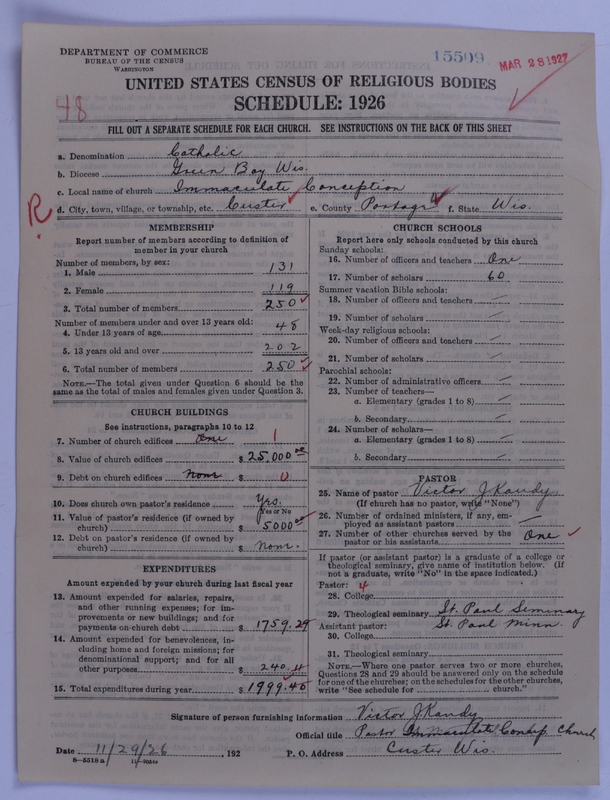 DEPARTMENT OF COMMERCE
BUREAU OF THE CENSUS
WASHINGTON
15509
MAR 28 1927
UNITED STATES CENSUS OF RELIGIOUS BODIES
SCHEDULE: 1926
48
FILL OUT A SEPARATE SCHEDULE FOR EACH CHURCH. SEE INSTRUCTIONS ON THE BACK OF THIS SHEET
a. Denomination Catholic
b. Diocese Green Bay Wis.
c. Local name of church Immaculate Conception
R. d. City, town, village, or township, etc. Custer e. County Portage f. State Wis.
MEMBERSHIP
Report number of members according to definition of
member in your church
Number of members, by sex:
1. Male 131
2. Female 119
3. Total number of members 250
Number of members under and over 13 years old:
4. Under 13 years of age 48
5. 13 years old and over 202
6. Total number of members 250
NOTE.—The total given under Question 6 should be the
same as the total of males and females given under Question 3.
CHURCH BUILDINGS
See instructions, paragraphs 10 to 12
7. Number of church edifices One 1
8. Value of church edifices $ 25,000 00
9. Debt on church edifices None $ 0
10. Does church own pastor's residence Yes.
Yes or No
11. Value of pastor's residence (if owned by
church) $ 5000 00
12. Debt on pastor's residence (if owned by
church) $ None.
EXPENDITURES
Amount expended by your church during last fiscal year
13. Amount expended for salaries, repairs,
and other running expenses; for im-
provements or new buildings; and for
payments on church debt $ 1759.29
14. Amount expended for benevolences, in-
cluding home and foreign missions; for
denominational support; and for all
other purposes $ 240.11
15. Total expenditures during year $ 1999.40
CHURCH SCHOOLS
Report here only schools conducted by this church
Sunday schools:
16. Number of officers and teachers One
17. Number of scholars 60
Summer vacation Bible schools:
18. Number of officers and teachers
19. Number of scholars
Week-day religious schools:
20. Number of officers and teachers
21. Number of scholars
Parochial schools:
22. Number of administrative officers
23. Number of teachers—
a. Elementary (grades 1 to 8)
b. Secondary
24. Number of scholars—
a. Elementary (grades 1 to 8)
b. Secondary
PASTOR
25. Name of pastor Victor J. Kandy
(If church has no pastor, write "None")
26. Number of ordained ministers, if any, em-
ployed as assistant pastors
27. Number of other churches served by the
pastor or his assistants One
If pastor (or assistant pastor) is a graduate of a college or
theological seminary, give name of institution below. (If
not a graduate, write "No" in the space indicated.)
Pastor: 4
28. College
29. Theological seminary St. Paul Seminary
Assistant pastor: St. Paul Minn.
30. College
31. Theological seminary
NOTE.—Where one pastor serves two or more churches,
Questions 28 and 29 should be answered only on the schedule
for one of the churches; on the schedules for the other churches,
write "See schedule for church."
Signature of person furnishing information Victor J. Kandy
Official title Pastor Immaculate Concep Church
Date 11/29/26, 192 P. O. Address Custer Wis.
8—5518 a